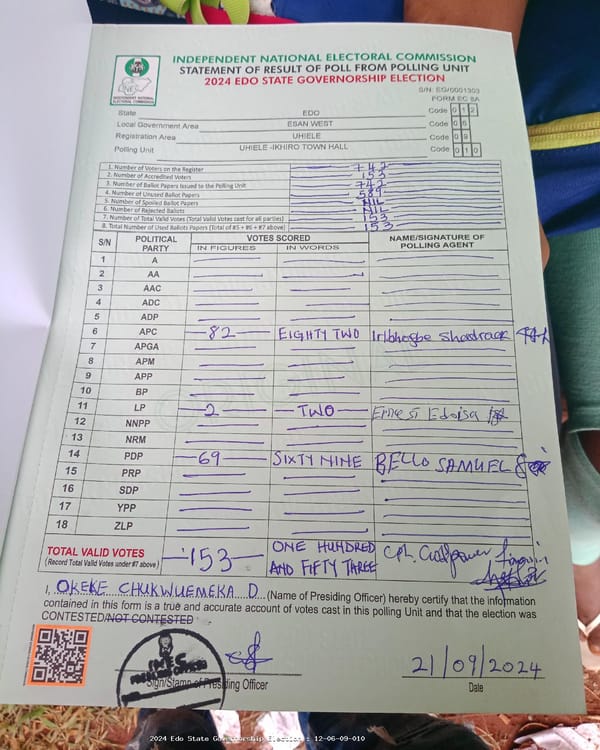 INDEPENDENT NATIONAL ELECTORAL COMMISSION
STATEMENT OF RESULT OF POLL FROM POLLING UNIT
2024 EDO STATE GOVERNORSHIP ELECTION
INDEPENDENT NATIONAL ELECTORAL COMMISSION
S/N: EG/0001303
FORM EC 8A
State EDO Code 0 1 2
Local Government Area ESAN WEST Code 0 6
Registration Area UHIELE Code 0 9
Polling Unit UHIELE -IKHIRO TOWN HALL Code 0 1 0
1. Number of Voters on the Register 742
2. Number of Accredited Voters 153
3. Number of Ballot Papers Issued to the Polling Unit 742
4. Number of Unused Ballot Papers 589
5. Number of Spoiled Ballot Papers NIL
6. Number of Rejected Ballots NIL
7. Number of Total Valid Votes (Total Valid Votes cast for all parties) 153
8. Total Number of Used Ballots Papers (Total of #5 + #6 + #7 above) 153
S/N POLITICAL PARTY VOTES SCORED NAME/SIGNATURE OF POLLING AGENT
IN FIGURES IN WORDS
1 A
2 AA
3 AAC
4 ADC
5 ADP
6 APC 82 EIGHTY TWO Shadrack
7 APGA
8 APM
9 APP
10 BP
11 LP 2 TWO
12 NNPP
13 NRM
14 PDP 69 SIXTY NINE BELLO SAMUEL
15 PRP
16 SDP
17 YPP
18 ZLP
TOTAL VALID VOTES 153 ONE HUNDRED
(Record Total Valid Votes under #7 above) AND FIFTY THREE
I, OKEKE CHUKWUEMEKA D. (Name of Presiding Officer) hereby certify that the information
contained in this form is a true and accurate account of votes cast in this polling Unit and that the election was
CONTESTED/NOT CONTESTED
21/09/2024
Sign/Stamp of Presiding Officer Date
2024 Edo State Governorship Election : 12-06-09-010